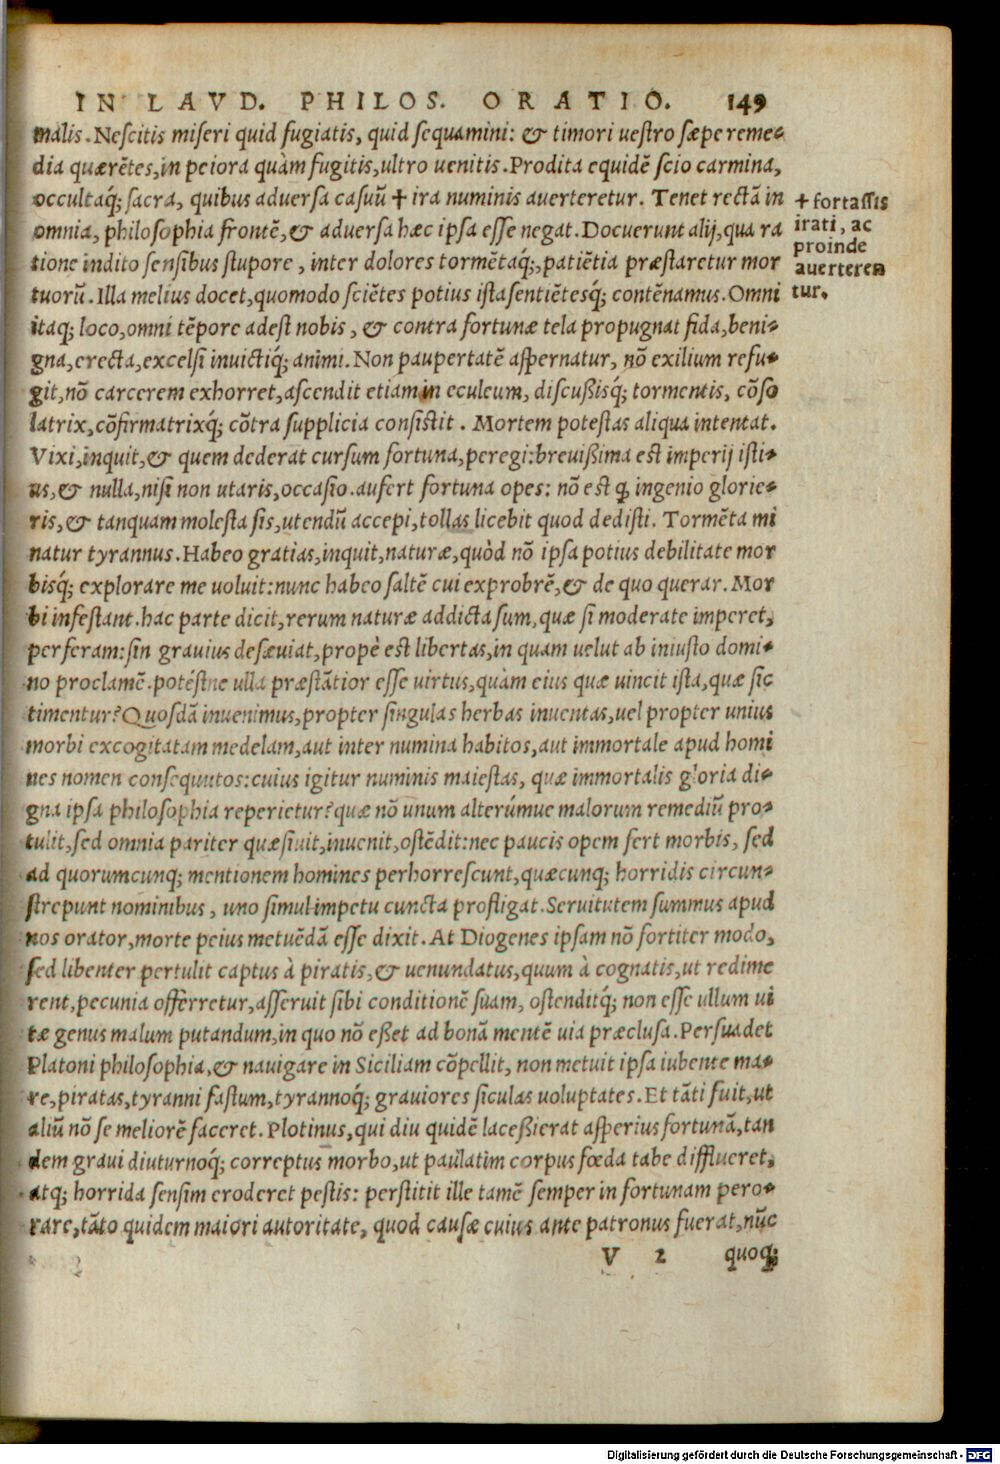 IN LAVD. PHILOS. ORATIO. 149
malis. Nescitis miseri quid fugiatis, quid sequamini: & timori uestro sæpe reme-
dia quærētes, in peiora quàm fugitis, ultro uenitis. Prodita equidē scio carmina,
occultaq́; sacra, quibus aduersa casuū † ira numinis auerteretur. Tenet rectā in
omnia, philosophia frontē, & aduersa hæc ipsa esse negat. Docuerunt alij, qua ra
tione indito sensibus stupore, inter dolores tormētaq́;, patiētia præstaretur mor
tuorū. Illa melius docet, quomodo sciētes potius ista sentiētesq́; contēnamus. Omni
itaq; loco, omni tēpore adest nobis, & contra fortunæ tela propugnat fida, beni-
gna, erecta, excelsi inuictiq́; animi. Non paupertatē aspernatur, nō exilium refu-
git, nō carcerem exhorret, ascendit etiam in eculeum, discußisq́; tormentis, cōso
latrix, cōfirmatrixq́; cōtra supplicia consistit. Mortem potestas aliqua intentat.
Vixi, inquit, & quem dederat cursum fortuna, peregi: breuißima est imperij isti-
us, & nulla, nisi non utaris, occasio. aufert fortuna opes: nō est ꝙ ingenio glorie-
ris, & tanquam molesta sis, utendū accepi, tollas licebit quod dedisti. Tormēta mi
natur tyrannus. Habeo gratias, inquit, naturæ, quòd nō ipsa potius debilitate mor
bisq́; explorare me uoluit: nunc habeo saltē cui exprobrē, & de quo querar. Mor
bi infestant. hac parte dicit, rerum naturæ addicta sum, quæ si moderate imperet,
perferam: sin grauius desæuiat, propè est libertas, in quam uelut ab iniusto domi-
no proclamē. potéstne ulla præstātior esse uirtus, quàm eius quæ uincit ista, quæ sic
timentur? Quosdā inuenimus, propter singulas herbas inuentas, uel propter unius
morbi excogitatam medelam, aut inter numina habitos, aut immortale apud homi
nes nomen consequutos: cuius igitur numinis maiestas, quæ immortalis gloria di-
gna ipsa philosophia reperietur? quæ nō unum alterúmue malorum remediū pro-
tulit, sed omnia pariter quæsiuit, inuenit, ostēdit: nec paucis opem fert morbis, sed
ad quorumcunq; mentionem homines perhorrescunt, quæcunq; horridis circun-
strepunt nominibus, uno simul impetu cuncta profligat. Seruitutem summus apud
nos orator, morte peius metuēdā esse dixit. At Diogenes ipsam nō fortiter modo,
sed libenter pertulit captus à piratis, & uenundatus, quum à cognatis, ut redime
rent, pecunia offerretur, asseruit sibi conditionē suam, ostenditq́; non esse ullum ui
tæ genus malum putandum, in quo nō eßet ad bonā mentē uia præclusa. Persuadet
Platoni philosophia, & nauigare in Siciliam cōpellit, non metuit ipsa iubente ma-
re, piratas, tyranni fastum, tyrannoq́; grauiores siculas uoluptates. Et tāti fuit, ut
aliū nō se meliorē faceret. Plotinus, qui diu quidē laceßierat asperius fortunā, tan
dem graui diuturnoq́; correptus morbo, ut paulatim corpus fœda tabe difflueret,
atq; horrida sensim eroderet pestis: perstitit ille tamē semper in fortunam pero-
rare, tāto quidem maiori autoritate, quod causæ cuius ante patronus fuerat, nūc
V 2 quoq;
† fortassis
irati, ac
proinde
auerteren
tur.
Digitalisierung gefördert durch die Deutsche Forschungsgemeinschaft - DFG